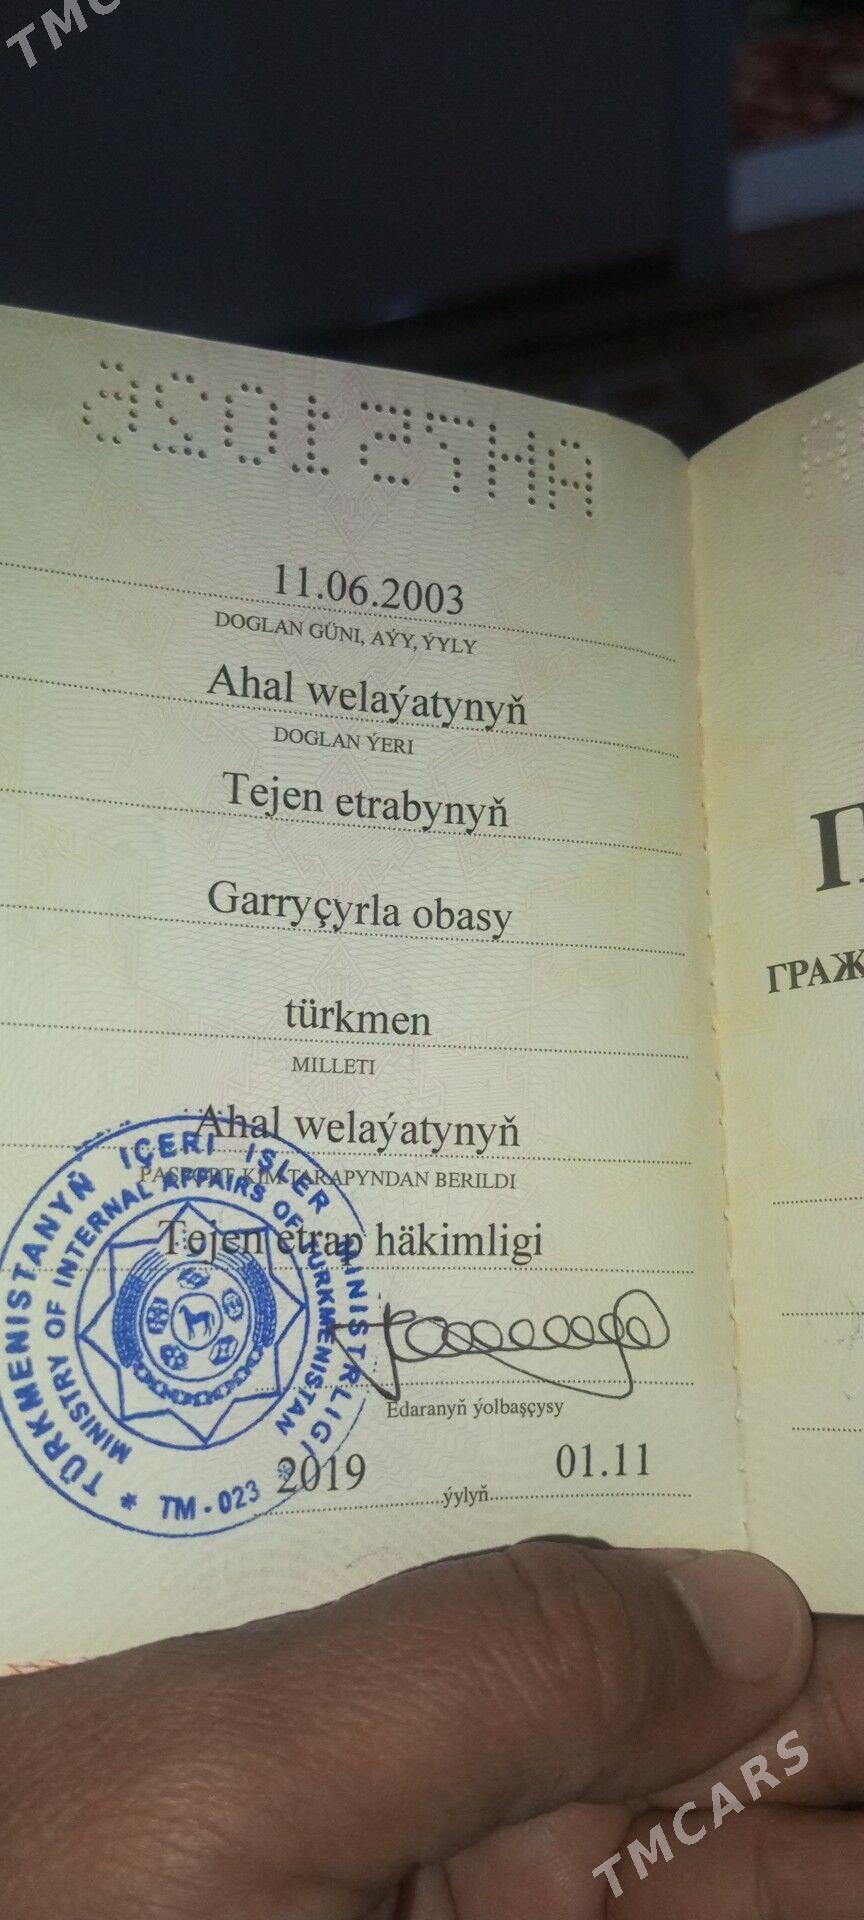 TMC
11.06.2003
DOGLAN GÜNI, AÝY, ÝYLY
Ahal welaýatynyň
DOGLAN ÝERI
Tejen etrabynyň
Garryçyrla obasy
türkmen
MILLETI
Ahal welaýatynyň
PASPORT KIM TARAPYNDAN BERILDI
Tejen etrap häkimligi
TÜRKMENISTANYŇ IÇERI IŞLER MINISTRLIGI
MINISTRY OF INTERNAL AFFAIRS OF TURKMENISTAN
* TM - 023 *
Edaranyň ýolbaşçysy
2019 ýylyň 01.11
П
ГРАЖ
TMCARS